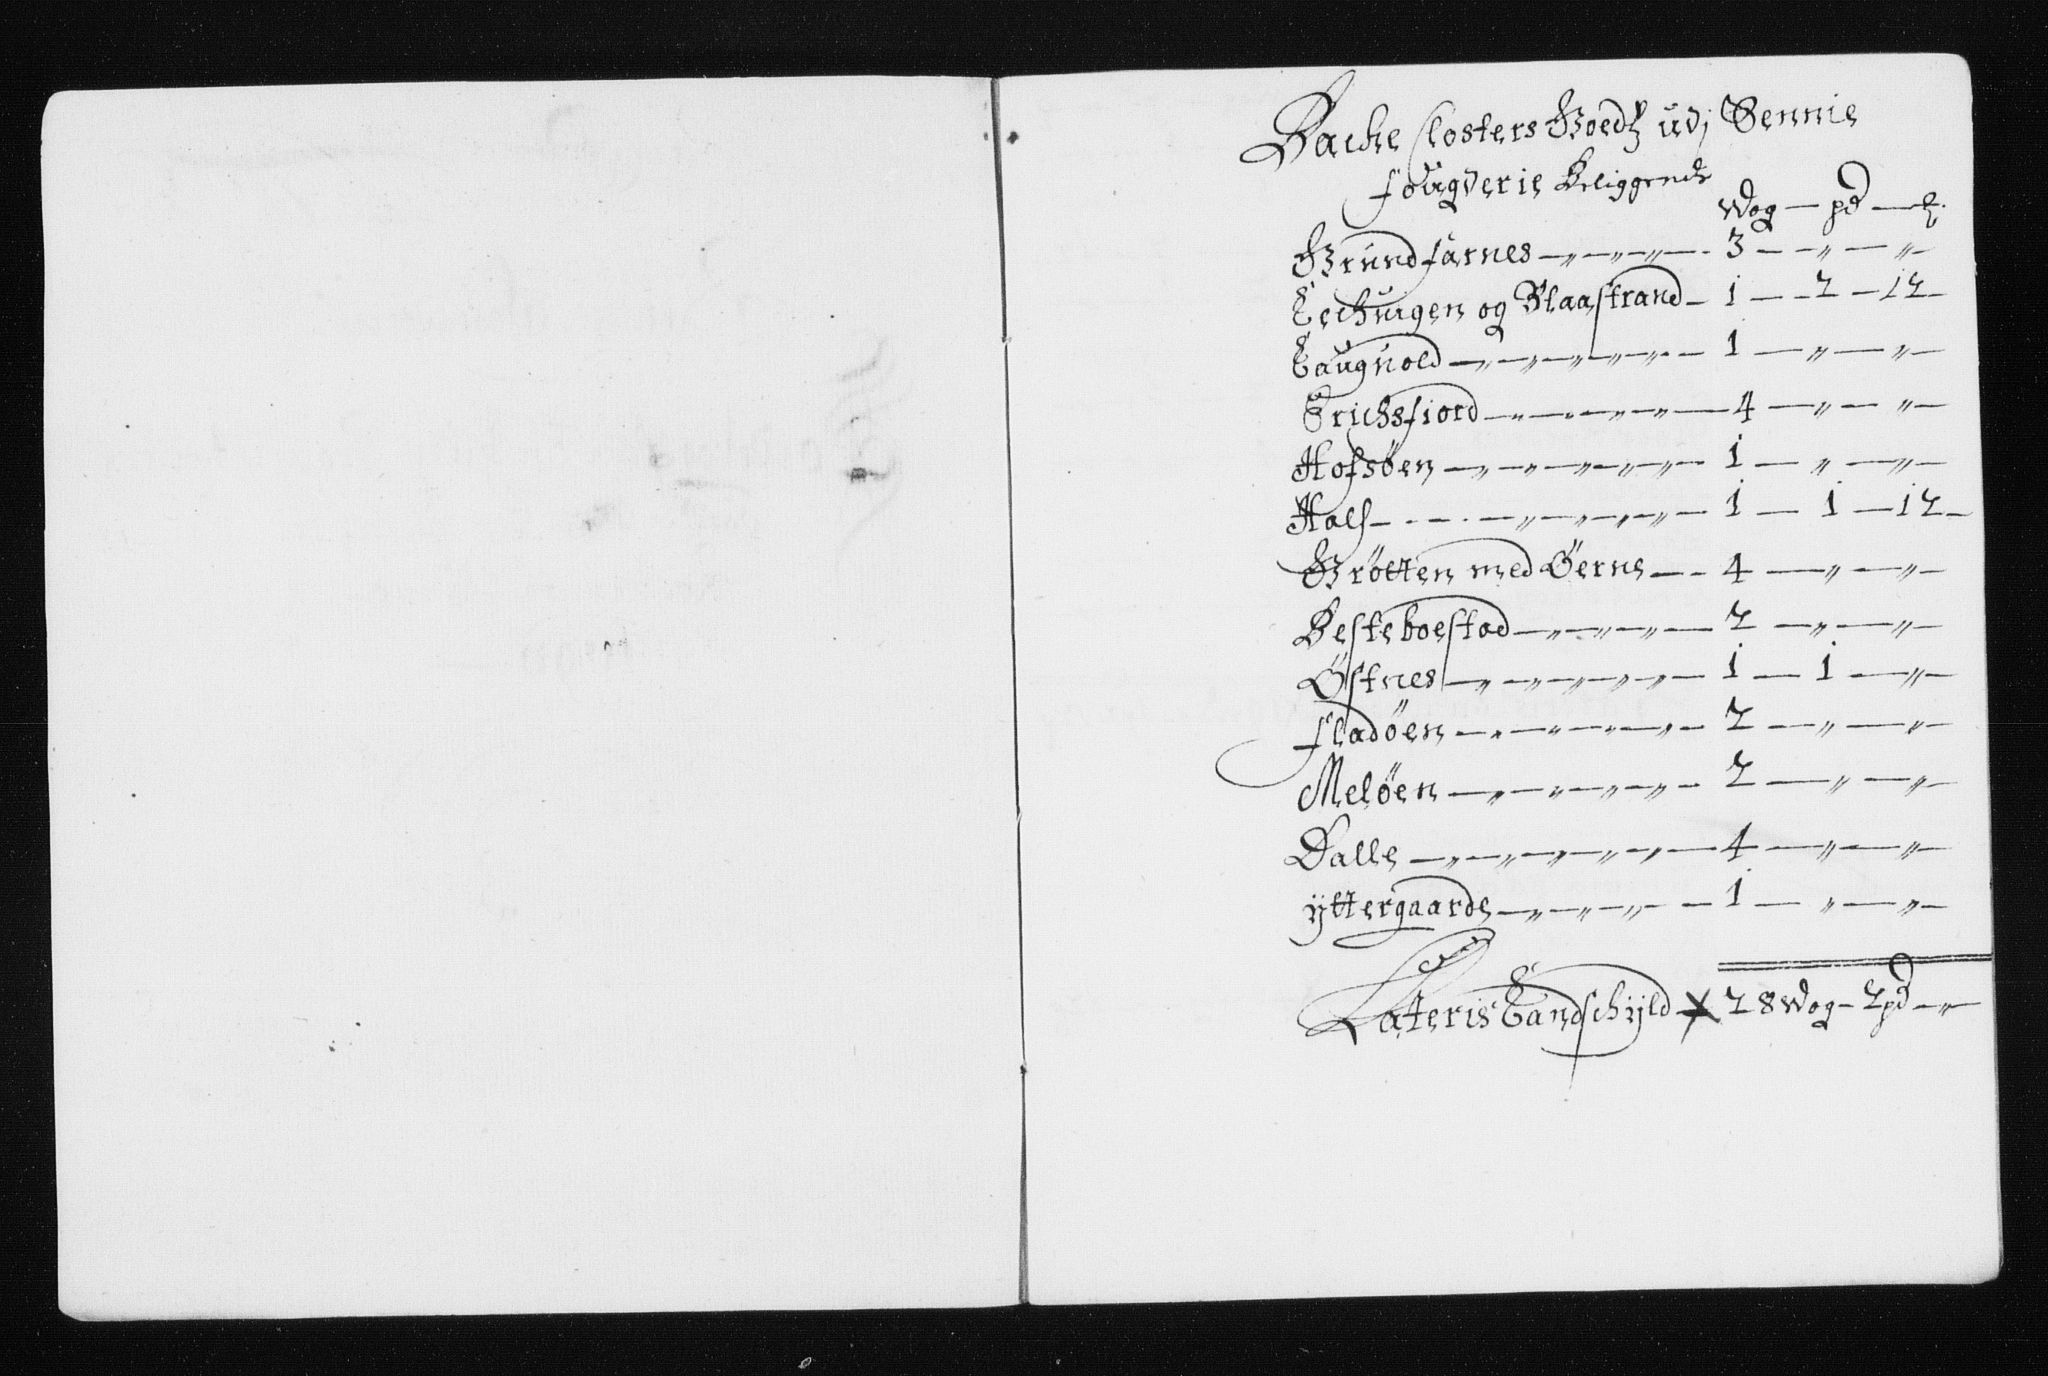 Backe Closters Goedtz udj Sennie
fougderie Beliggende
Wog — pd — ℔
Grundfarnes — „ — „ — „ — 3 — „ — „
Lechuigen og Blaastrand — 1 — 2 — 12
Laugnold — „ — „ — „ — 1 — „ — „
Erichsfiord — „ — „ — „ — 4 — „ — „
Hofsöen — „ — „ — „ — 1 — „ — „
Hals — „ — „ — „ — 1 — 1 — 12
Grötten med Öerne — 4 — „ — „
Besteboestad — „ — „ — „ — 2 — „ — „
Östnes — „ — „ — „ — 1 — 1 — „
fladöen — „ — „ — „ — 2 — „ — „
Melöen — „ — „ — „ — 2 — „ — „
Dalle — „ — „ — „ — 4 — „ — „
ÿttergaarde — „ — „ — „ — 1 — „ — „
Lateris Landschÿld 28 Wog — 2 pd — „